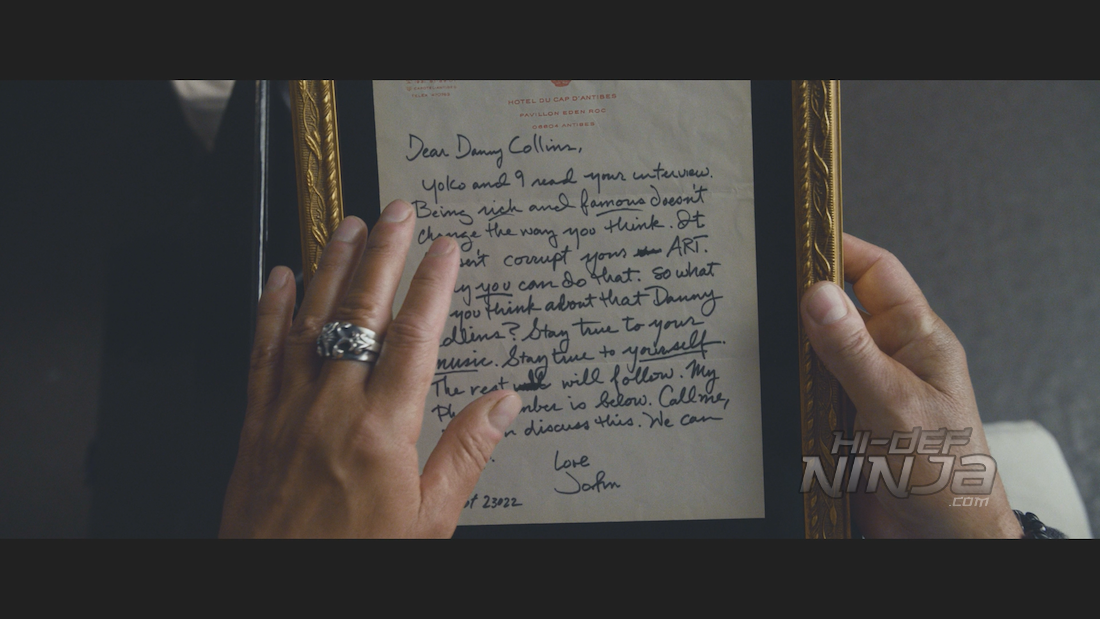 HOTEL DU CAP D'ANTIBES
PAVILLON EDEN ROC
06604 ANTIBES
Dear Danny Collins,
Yoko and I read your interview.
Being rich and famous doesn't
change the way you think. It
corrupt your ART.
you can do that. So what
you think about that Danny
? Stay true to your
music. Stay true to yourself.
The rest will follow. My
is below. Call me,
discuss this. We can
Love
John
23022
HI-DEF
NINJA
.COM